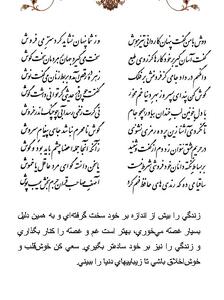 دوش با من گفت پنهان کاردانی تیزهوش وز شما پنهان نشاید کرد سر می فروش
گفت آسان گیر بر خود کارها کز روی طبع سخت می گیرد جهان بر مردمان سخت کوش
وانگهم در داد جامی کز فروغش بر فلک زهره در رقص آمد و بربط زنان می گفت نوش
گوش کن پند ای پسر وز بهر دنیا غم مخور گفتمت چون در حدیثی گر توانی داشت هوش
با دل خونین لب خندان بیاور همچو جام نی گرت زخمی رسد آیی چو چنگ اندر خروش
تا نگردی آشنا زین پرده رمزی نشنوی گوش نامحرم نباشد جای پیغام سروش
در حریم عشق نتوان زد دم از گفت و شنید زانکه آنجا جمله اعضا چشم باید بود و گوش
بر بساط نکته دانان خود فروشی شرط نیست یا سخن دانسته گو ای مرد عاقل یا خموش
ساقیا می ده که رندی های حافظ فهم کرد آصف صاحب قران جرم بخش عیب پوش
زندگی را بیش از اندازه بر خود سخت گرفته‌ای و به همین دلیل
بسیار غصّه می‌خوری، بهتر است غم و غصّه را کنار بگذاری
و زندگی را نیز بر خود ساده‌تر بگیری. سعی کن خوش‌قلب و
خوش‌اخلاق باشی تا زیباییهای دنیا را ببینی.